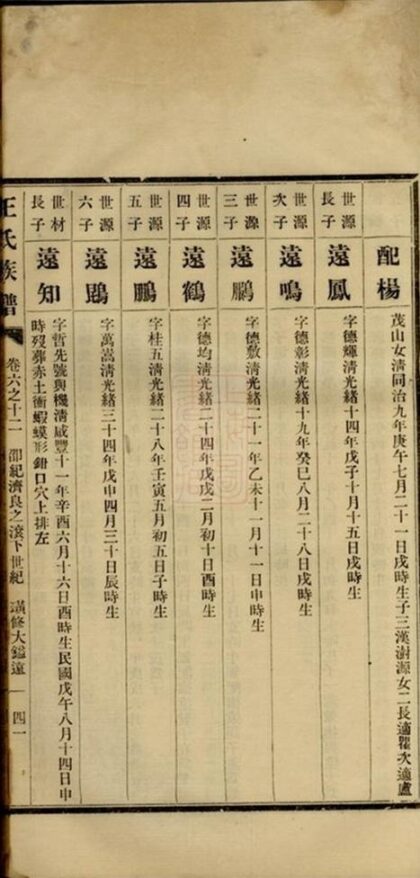 配楊
茂山女清同治九年庚午七月二十一日戌時生子三漢澍源女二長適瞿次適盧
世源長子
遠鳳
字德輝清光緒十四年戊子十月十五日戌時生
世源次子
遠鳴
字德彰清光緒十九年癸巳八月二十八日戌時生
世源三子
遠鵬
字德敷清光緒二十一年乙未十一月十一日申時生
世源四子
遠鶴
字德均清光緒二十四年戊戌二月初十日酉時生
世源五子
遠鵬
字桂五清光緒二十八年壬寅五月初五日子時生
世源六子
遠
字萬嵩清光緒三十四年戊申四月三十日辰時生
世材長子
遠知
字哲先號與機清咸豐十一年辛酉六月十六日酉時生民國戊午八月十四日申
時歿葬赤土衝蝦蟆形鉗口穴上排左
王氏族譜
卷六之十二
卲紀濟良之滾下世紀
大鎰遠
四一